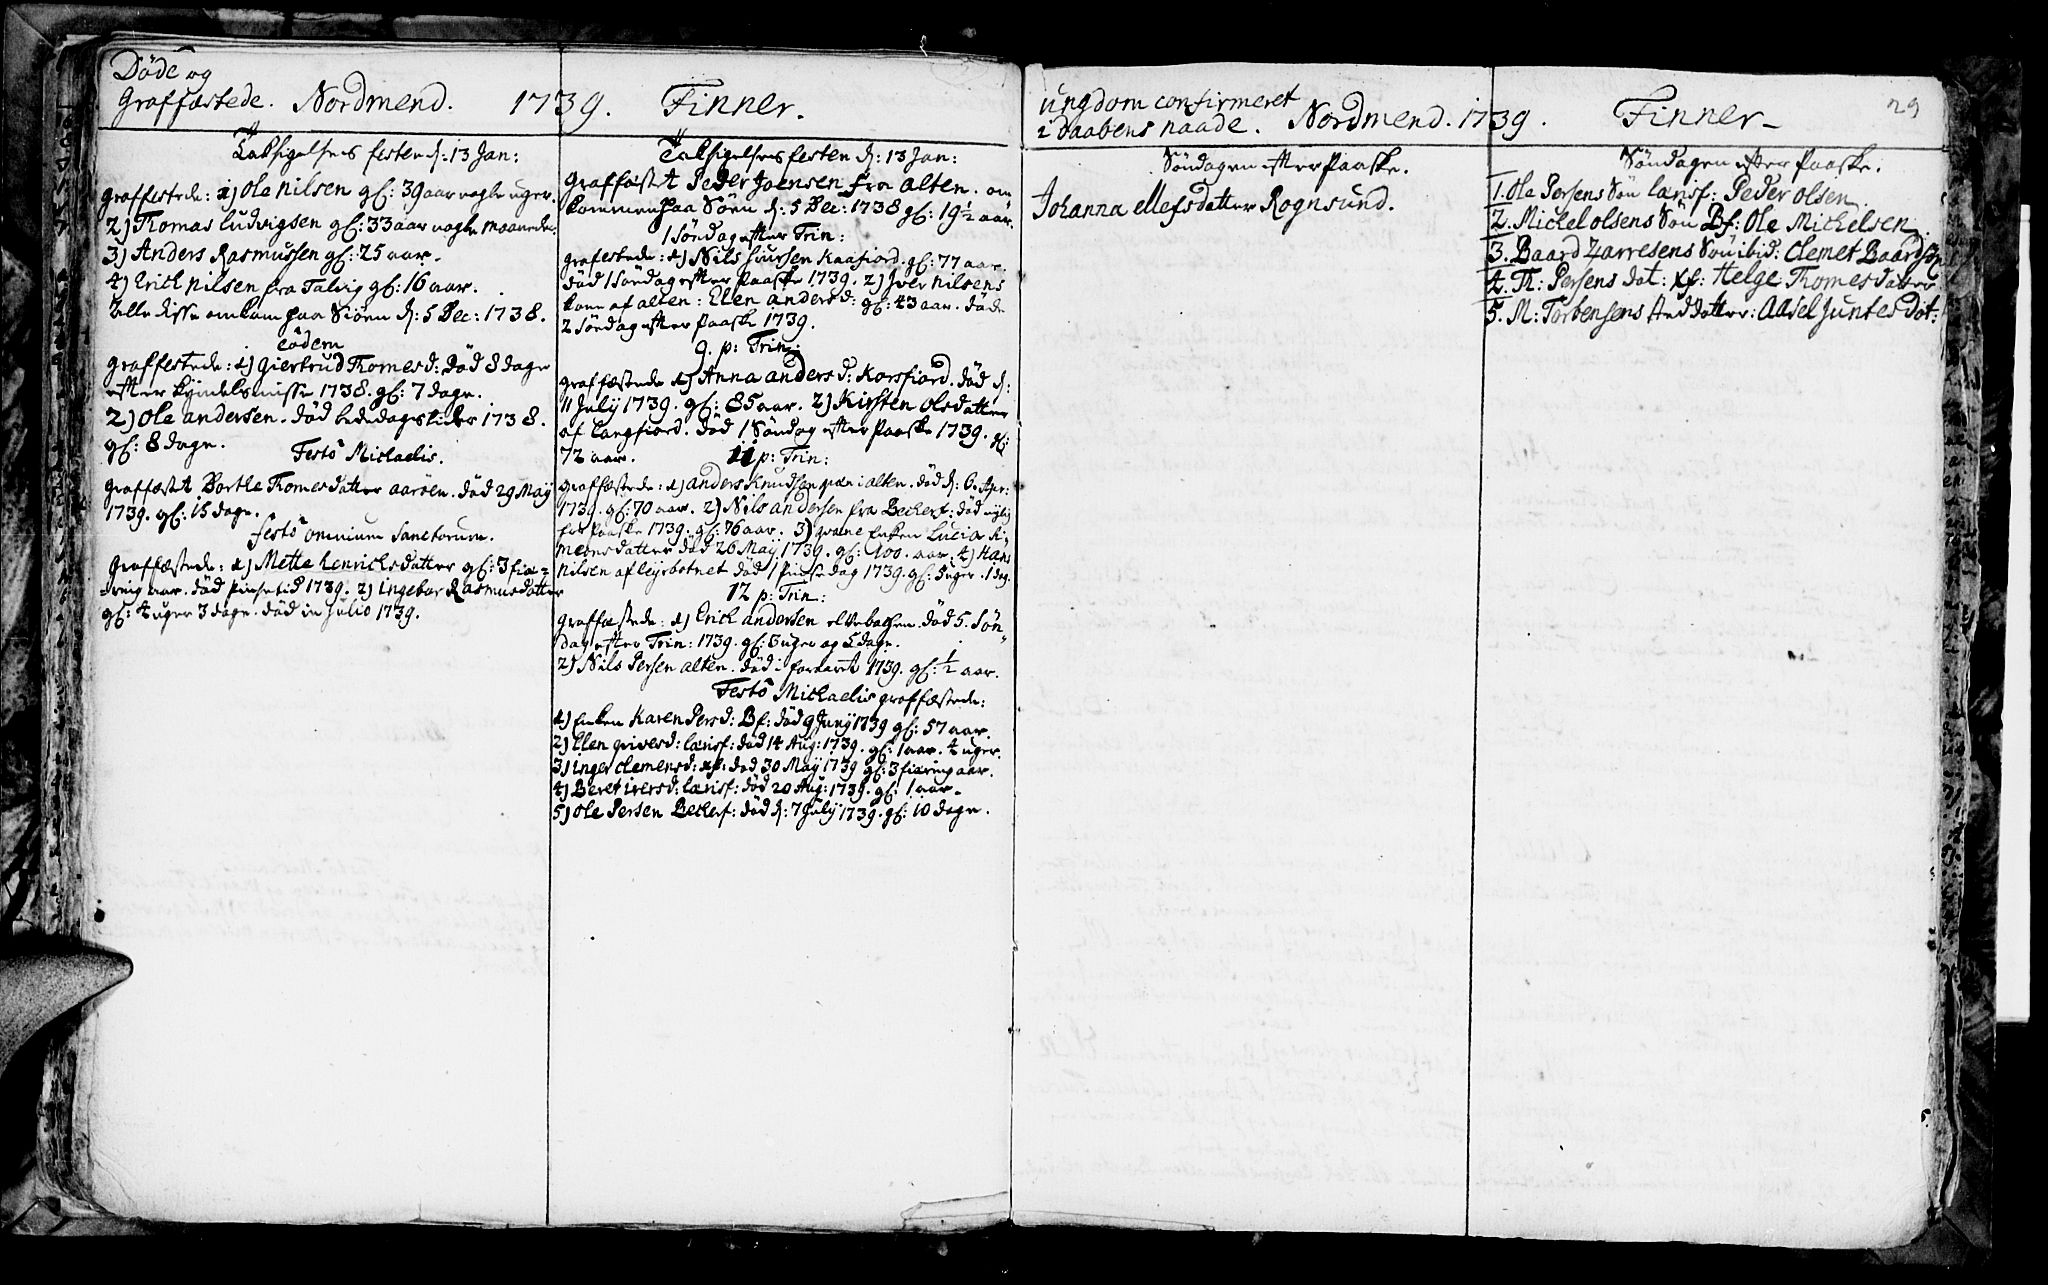 Döde og
Graffæstede. Nordmend. 1739. Finner.
Taksigelsens festen d: 13 Jan:
Graffestede: 1) Ole Nilsen gl: 39 aar nogle uger.
2) Thomas Ludvigsen gl: 33 aar nogle maaneder.
3) Anders Rasmussen gl: 25 aar.
4) Erich Nilsen fra Talvig gl: 16 aar.
Alle disse omkom paa Siöen d: 5 Dec: 1738.
Eodem
Graffestede: 1) Giertrud Thomesd: död 8 dage
efter Kyndelsmisse 1738. gl: 7 dage.
2) Ole Andersen. död bededagstider 1738.
gl: 8 dage.
Festo Michaelis.
Graffæstet Borthe Thomesdatter Aaröen. död 29 May
1739. gl: 15 dage.
Festo omnium Sanctorum.
Graffæstede: 1) Mette Henrichsdatter gl: 3 fie-
ring aar. död Pinsetid 1739. 2) Ingebor Rasmusdatter
gl: 4 uger 3 dage. död in Julio 1739.
Taksigelsens festen d: 13 Jan:
Graffæstet Peder Joensen fra Alten. om
kommen paa Söen d: 5 Dec: 1738 gl: 19 1/2 aar.
1 Söndag efter Trin:
Grafestede: 1) Nils Kaafiord. gl: 77 aar.
död 1 Söndag efter Paaske 1739. 2) Iver Nilsens
kone af Alten: Elen Andersd: gl: 43 aar. döde
2 Söndag efter Paaske 1739.
9. p: Trin:
Graffæstede 1) Anna Andersd: Korsfiord. död d:
11 July 1739. gl: 85 aar. 2) Kirsten Olsdatter
af Langfiord. död 1 Söndag efter Paaske 1739. gl:
72 aar.
11 p: Trin:
Graffæstede: 1) Anders Knudsen i Alten. död d: 6. Apr:
1739. gl: 70 aar. 2) Nils Andersen fra Beckerf: död
för Paaske 1739. gl: 76 aar. 3) qvæne Enken Lucia Si-
meonsdatter död 26 May 1739. gl: 100. aar. 4) Hans
Nilsen af Leyrbotnet död 1 Pinsedag 1739. gl: 3 uger. 1 dag.
12 p: Trin:
Graffæstede: 1) Erich Andersen Elvebachen. död 5. Sön-
dag efter Trin: 1739. gl: 3 uger og 5 dage.
2) Nils Persen Alten. död i foraaret 1739. gl: 1/2 aar.
Festo Michaelis graffæstede:
1) Enken Karen Persd: Bf: död 9 Juny 1739 gl: 57 aar.
2) Elen Iversd: Lærisf: död 14 Aug: 1739. gl: 1 aar. 4 uger.
3) Inger Clemensd: död 30 May 1739 gl: 3 fiering aar.
4) Beret Iversd: Lærisf: död 20 Aug: 1739. gl: 1 aar.
5) Ole Persen Beckerf: död d: 7 July 1739. gl: 10 dage.
29
ungdom confirmeret
i daabens naade. Nordmend. 1739. Finner
Söndagen efter Paaske.
Johanna Ellefsdatter Rognsund.
Söndagen efter Paaske.
1. Ole Persens Sön Lærisf: Peder Olsen
2. Michel Olsens Sön Bf: Ole Michelsen
3. Baard Zarresens Sön ibid: Clemet Baardsen
4. Th: Persens dat: Helge Thomesdatter
5. M: Torbensens Steddatter: Aasel Juntes dot: